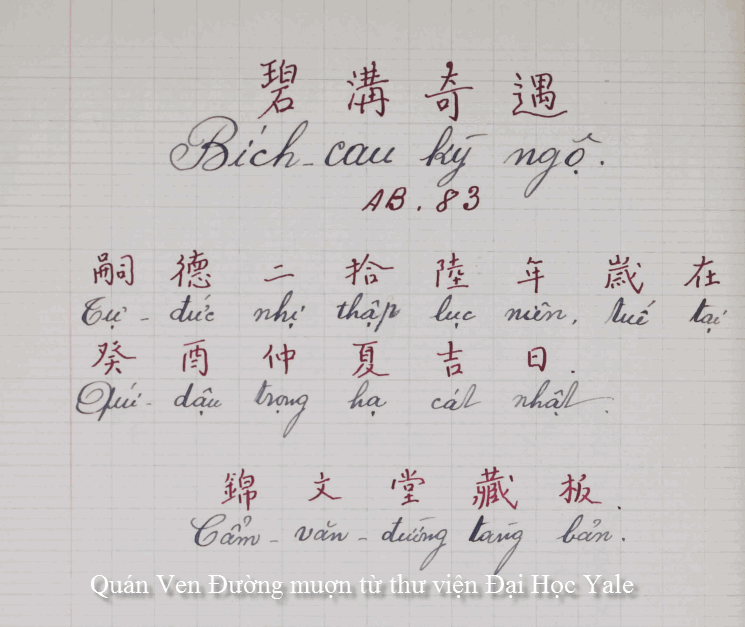 碧溝奇遇
Bích-cau kỳ ngộ.
AB.83
嗣德二拾陸年歲在
Tự-đức nhị thập lục niên, tuế tại
癸酉仲夏吉日.
Quí-dậu trọng hạ cát nhật.
錦文堂藏板.
Cẩm-văn-đường tàng bản.
Quán Ven Đường mượn từ thư viện Đại Học Yale